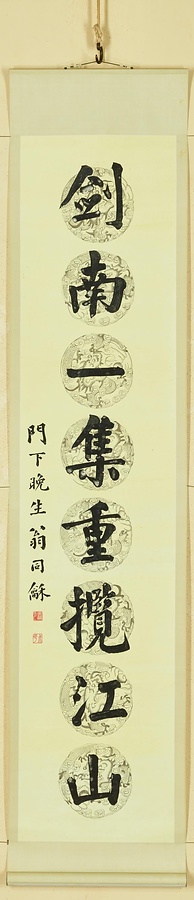 劍南一集重攬江山
門下晚生翁同龢